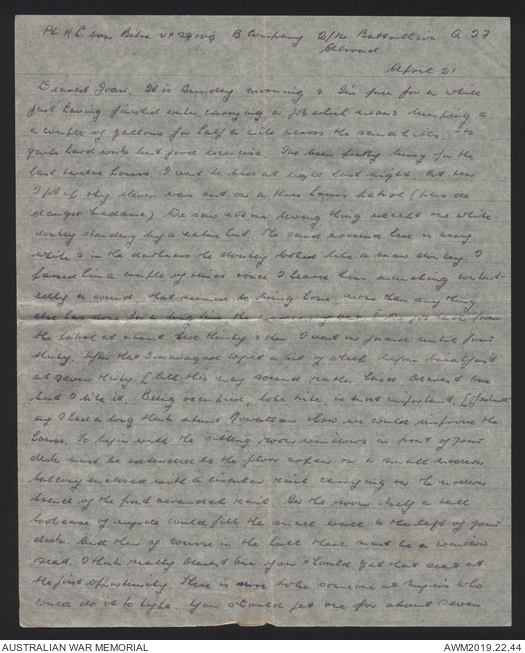 Pte H C von Bibra VX29109 B Company 2/14 Battalion A.I.F
Abroad
April 21
Dearest Joan, It is Sunday morning & I'm free for a while
just having finished water carrying, a job which means humping a
a couple of gallons for half a mile across the sand hills. It's
quite hard work but good exercise. I've been pretty busy for the
last twelve hours. I went to bed at eight last night. At ten
I got up they eleven was out on a three hours patrol (two
danger madame) We saw not one living thing except one white
donkey standing by a native hut. The sand around here is very
white & in the darkness the donkey looked like a snow donkey. I
passed him a couple of times once I heard him munching content-
edly a sound, that seemed to bring home, more than any thing
else has done for a long time, the I got back from
the patrol at about two thirty & then I went on guard until four
thirty. After that I managed a bit of sleep before breakfast
at seven thirty. All this may sound rather hard dearest one
but I like it. Being occupied, to be sure, is most important.
I had a long think about & how we could improve the
house. To begin with the sitting room windows in front of your
desk must be extended to the floor & open on a small modern
balcony enclosed with a circular rail carrying on the modern
trend of the front verandah rail. In the room itself a tall
bookcase of maple could fill the small wall to the left of your
desk. And then of course in the hall there must be a window
seat. I think really dearest one you should get that seat at
the first opportunity. There is sure to be someone at who
could do it to light. You should get one for about seven
AUSTRALIAN WAR MEMORIAL
AWM2019.22.44